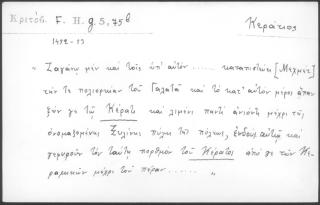 Κριτόβ. F. H. g. 5, 75b
Κεράτιος
1452-53
" Ζαγάνῳ μὲν καὶ τοῖς ὑπ' αὐτὸν ...... καταπιστεύει [Μεχμὲτ]
τήν τε πολιορκίαν τοῦ Γαλατᾶ καὶ τὸ κατ' αὐτὸν μέρος ἅπαν
ξὺν γε τῷ Κέρατι καὶ λιμένι παντὶ ἀνιόντι μέχρι τῆς
ὀνομαζομένης Ξυλίνης πύλης τῆς πόλεως, καὶ
γεφυροῦν τὸν ταύτῃ πορθμὸν τοῦ Κέρατος ἀπό γε τῶν Κε-
ραμικῶν μέχρι τοῦ πέραν ...... "